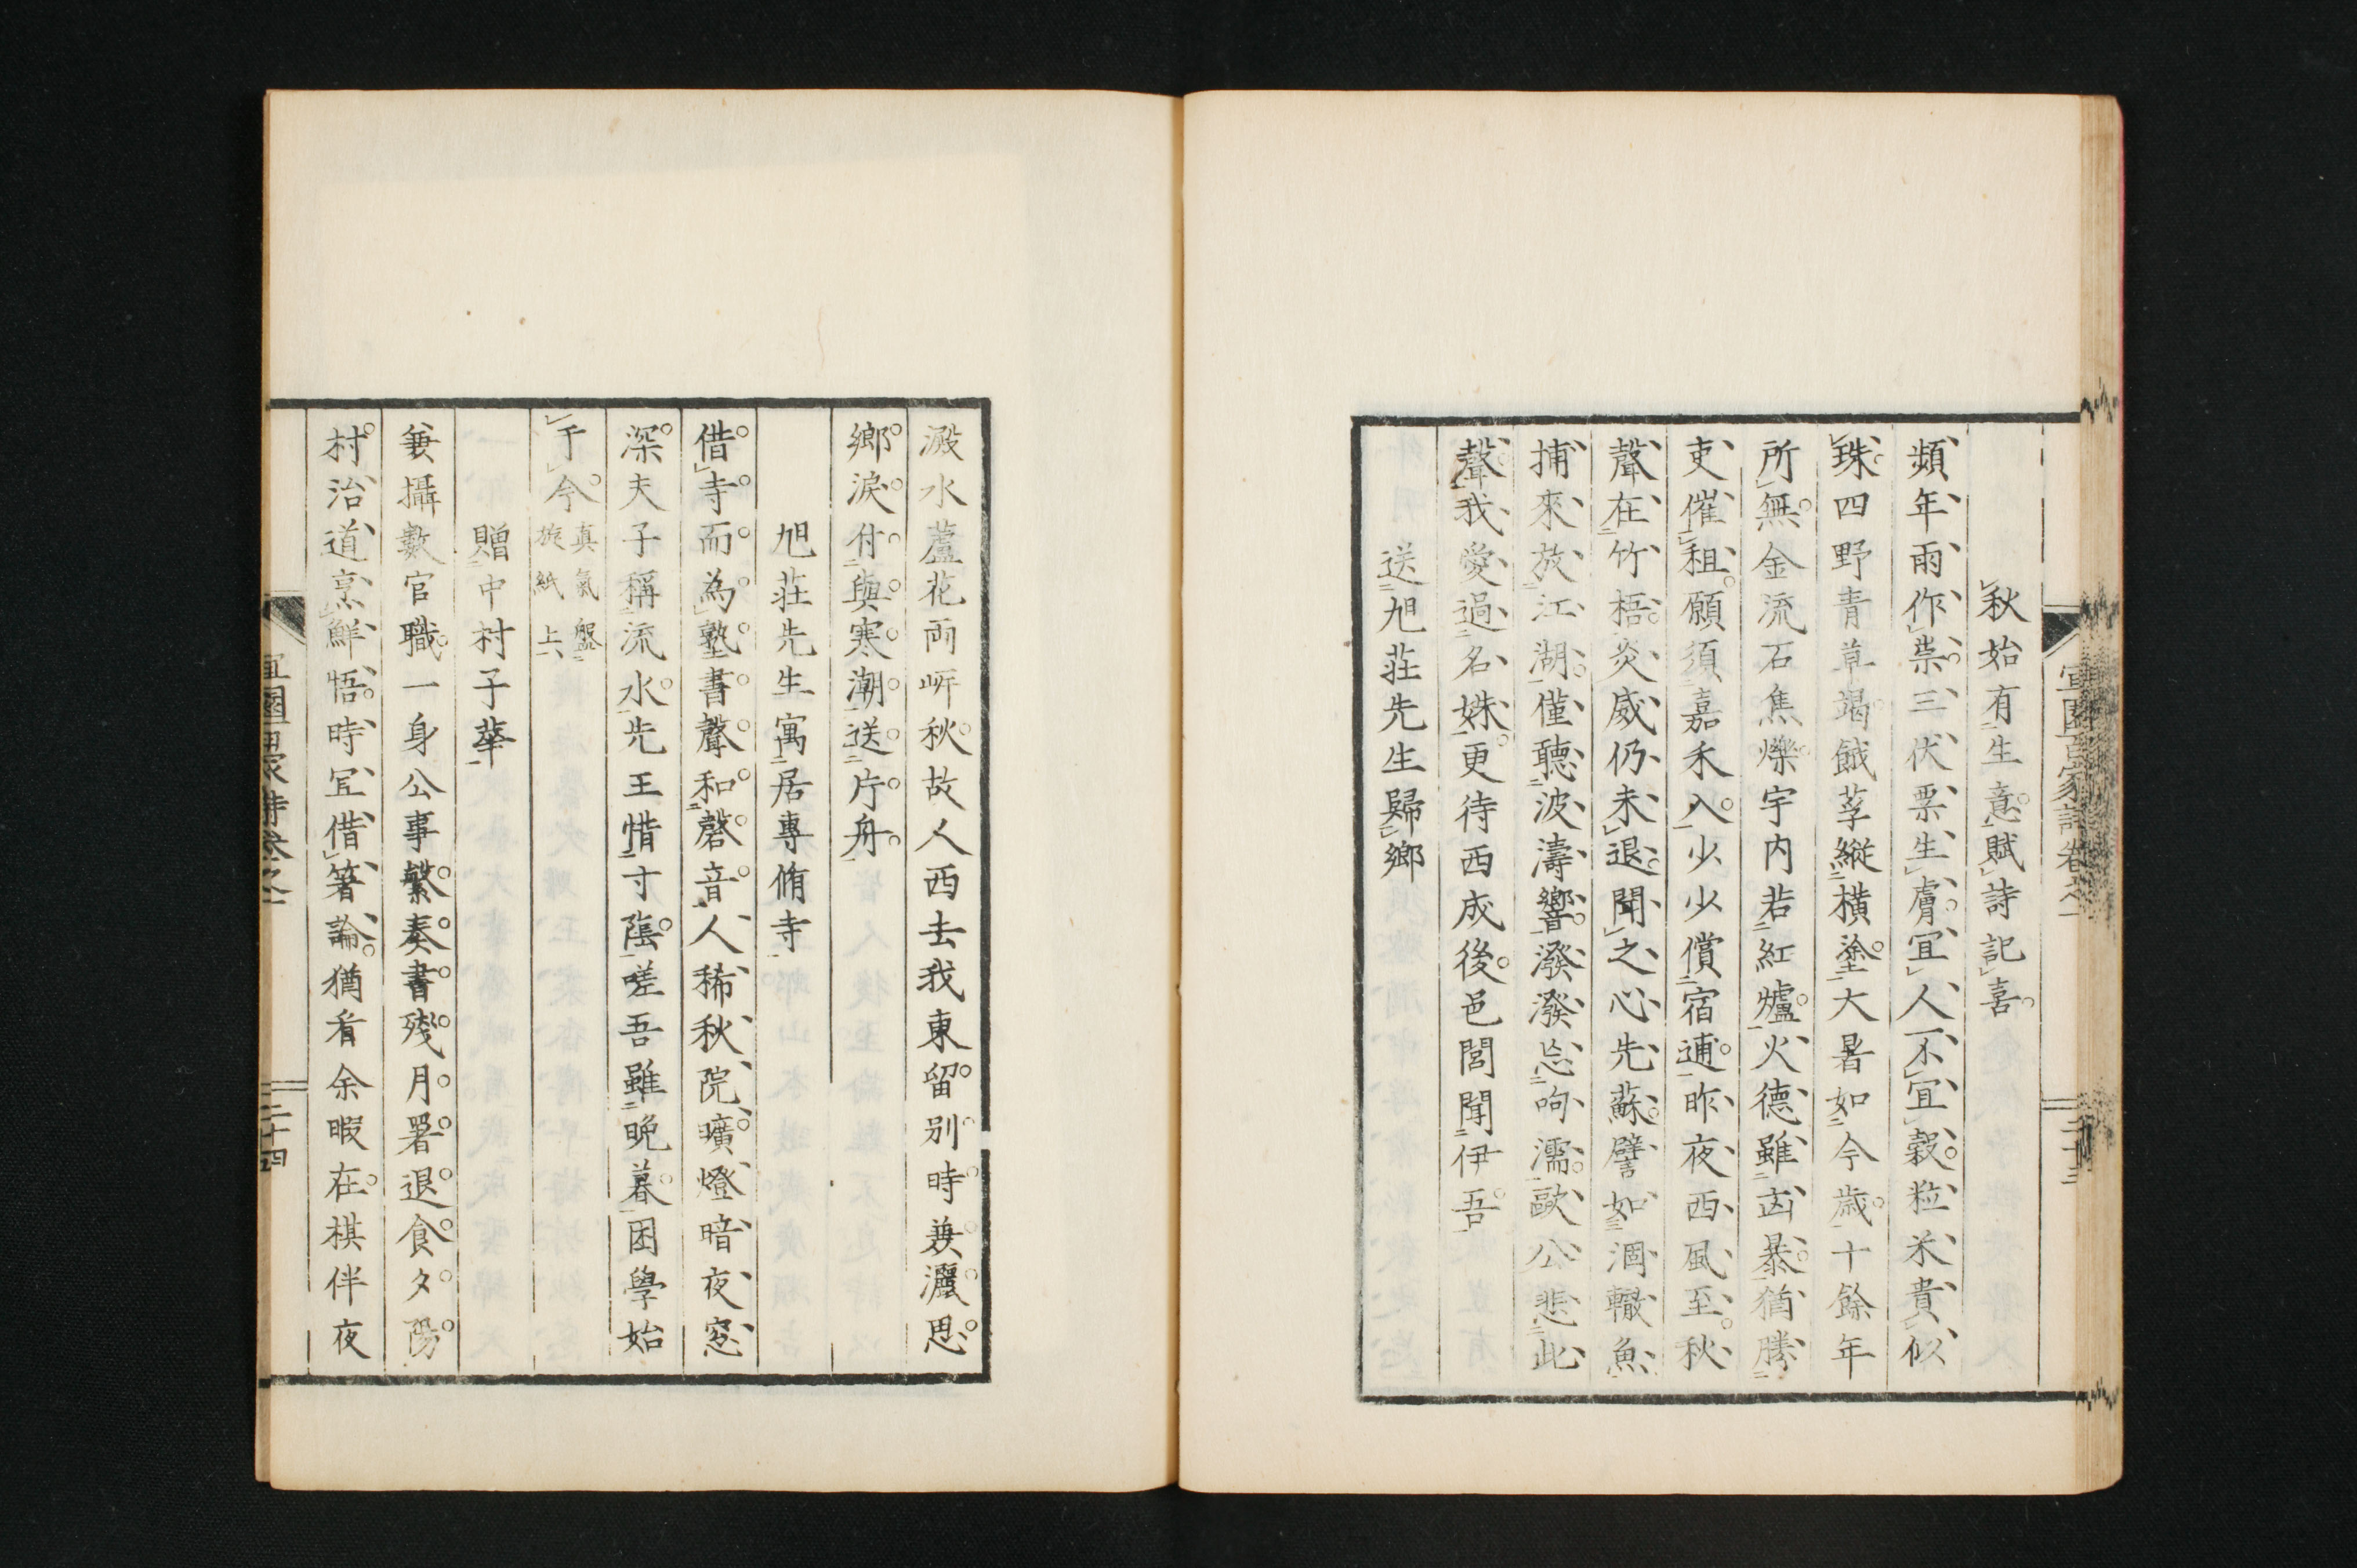 宜園百家詩卷之一
二十三
秋始有生意賦詩記喜
頻年雨作祟三伏栗生膚宜人不宜穀粒米貴似
珠四野青草竭餓莩縱橫塗大暑如今歲十餘年
所無金流石焦爍宇内若紅爐火德雖凶暴猶勝
吏催租願須嘉禾入少少償宿逋昨夜西風至秋
聲在竹梧炎威仍未退聞之心先蘇譬如涸轍魚
捕來放江湖僅聽波濤響潑潑忘呴濡歐公悲此
聲我愛過名姝更待西成後邑閭聞伊吾
送旭莊先生歸鄉
澱水蘆花兩岍秋故人西去我東留別時兼灑思
鄉淚付與寒潮送片舟
旭莊先生寓居專脩寺
借寺而為塾書聲和磬音人稀秋院曠燈暗夜窓
深夫子稱流水先王惜寸蔭嗟吾雖晩暮困學始
于今 真氣盤旋紙上
贈中村子華
兼攝數官職一身公事繫奏書殘月署退食夕陽
村治道烹鮮悟時宜借箸論猶看余暇在棋伴夜
宜園百家詩卷之一
二十四